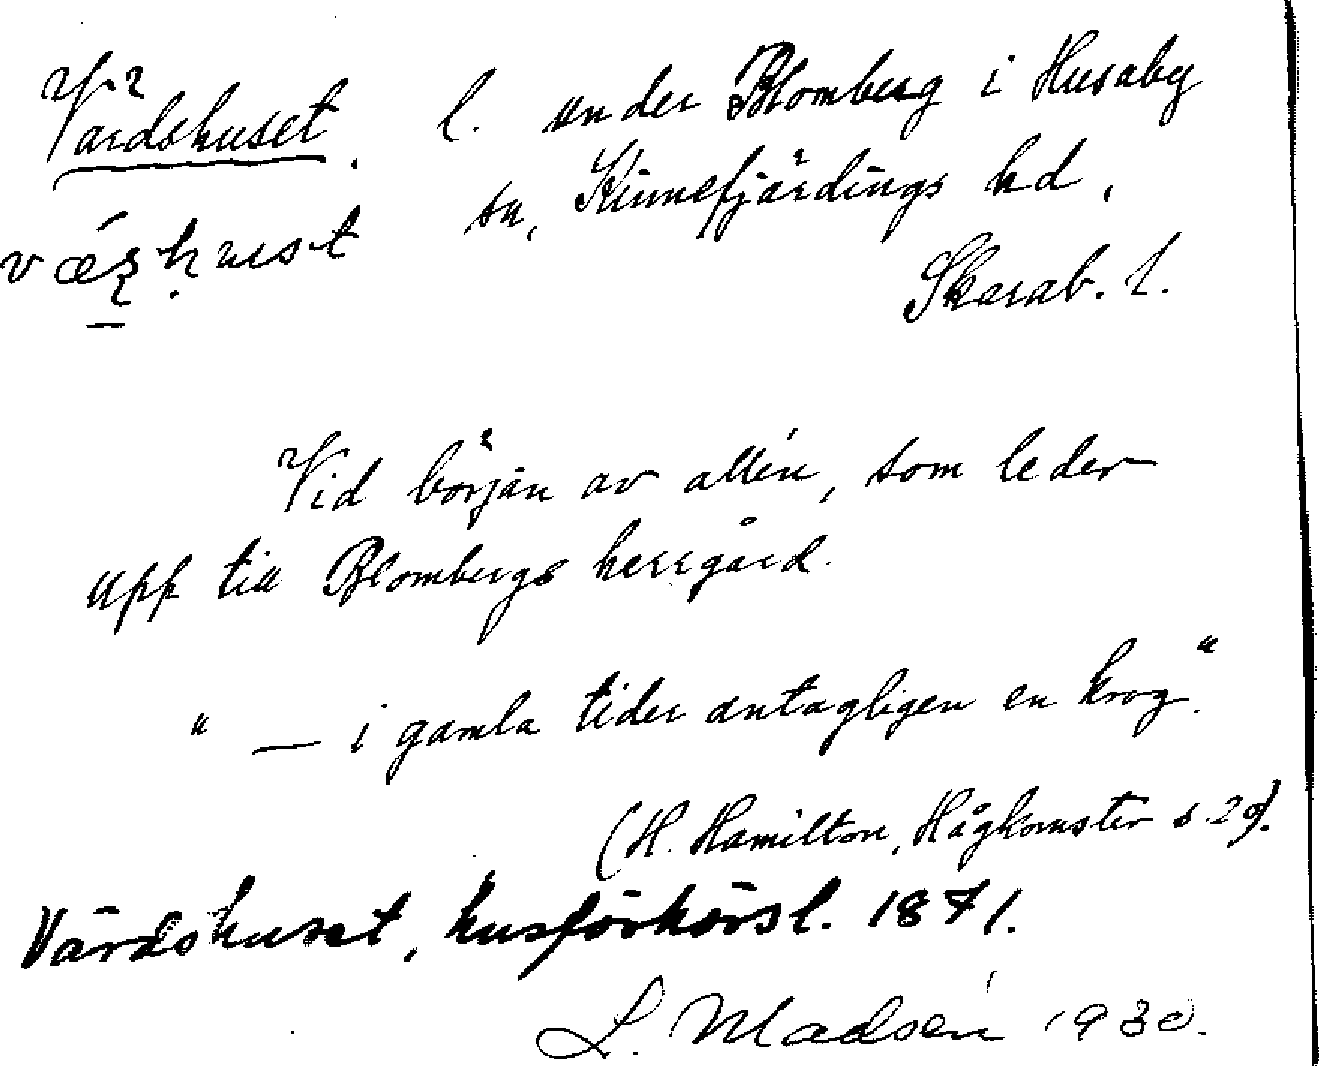 Värdshuset. l. under Blomberg i Husaby
sn, Kinnefjärdings hd,
Skarab. l.
Vid början av allén, som leder
upp till Blombergs herrgård.
" — i gamla tider antagligen en krog."
(H. Hamilton, Hågkomster s. 29).
Värdshuset, husförhörsl. 1871.
L. Madsén 1930.